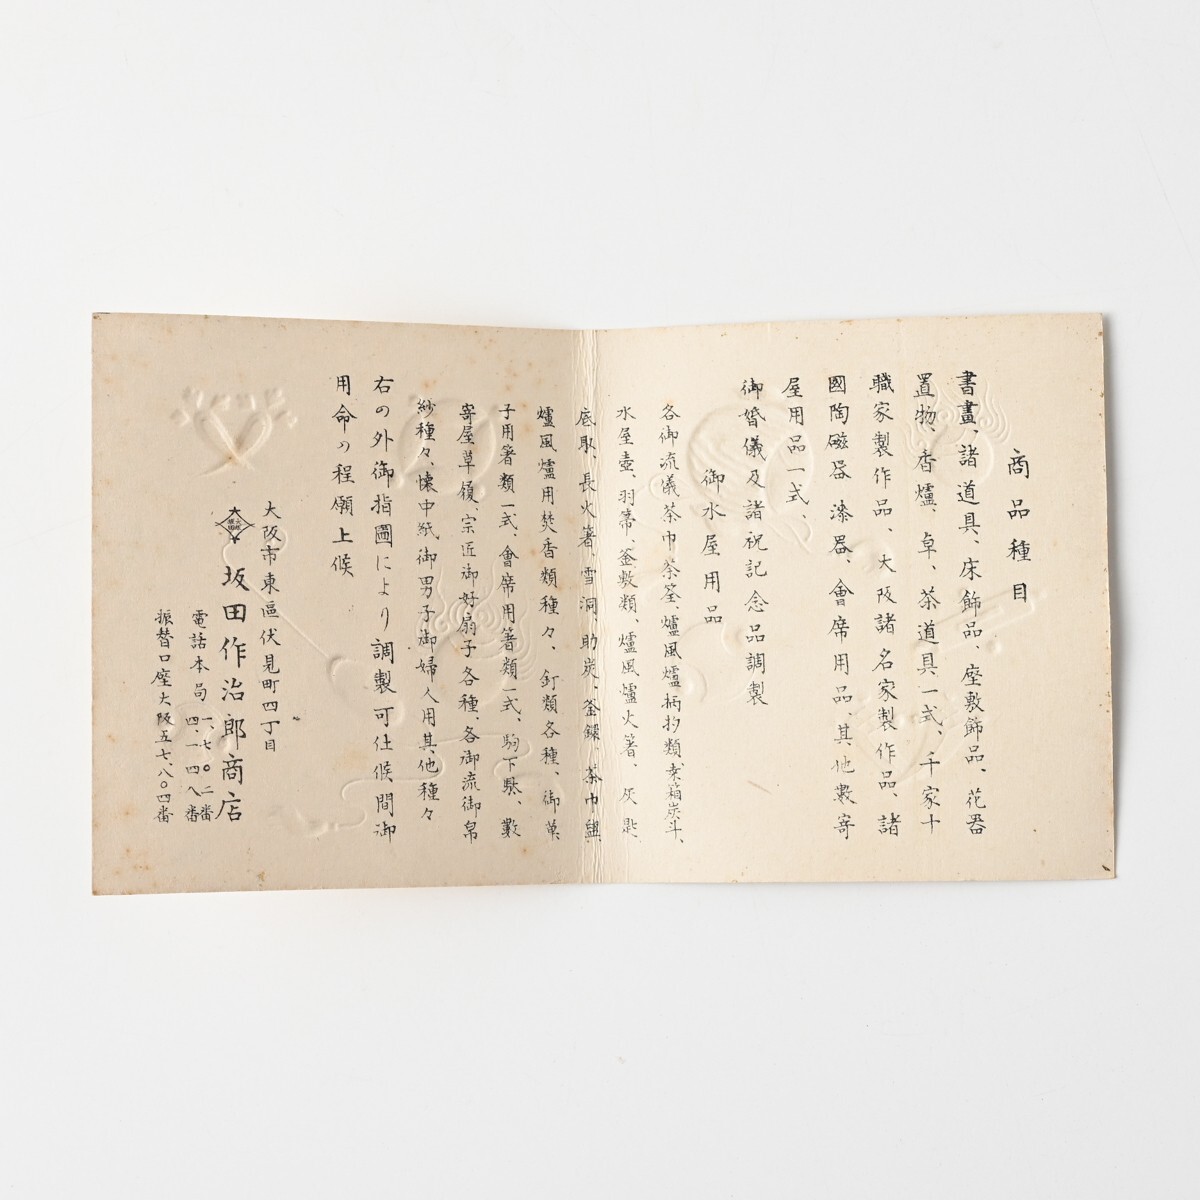 商品種目
書畫、諸道具、床飾品、座敷飾品、花器
置物、香爐、卓、茶道具一式、千家十
職家製作品、大阪諸名家製作品、諸
國陶磁器、漆器、會席用品、其他數寄
屋用品一式、
御婚儀及諸祝記念品調製
御水屋用品
各御流儀茶巾、茶筌、爐風爐柄杓類、炭斗、
水屋壺、羽箒、釜敷類、爐風爐火箸、灰匙
底取、長火箸、雪洞、助炭、釜鐶、茶巾盥
爐風爐用焚香類種々、釘類各種、御菓
子用箸類一式、會席用箸類一式、駒下駄、數
寄屋草履、宗匠御好扇子各種、各御流御帛
紗種々、懐中紙御男子御婦人用其他種々
右の外御指圖により調製可仕候間御
用命の程願上候
大阪市東區伏見町四丁目
坂田作治郎商店
電話本局 一、七〇二番
四、一四八番
振替口座大阪五七、八〇四番